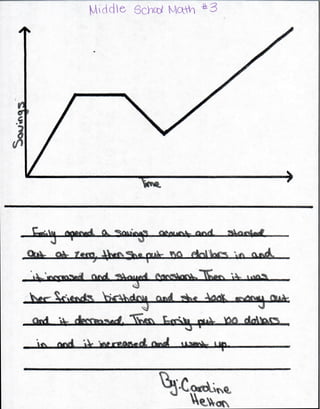 Middle School Math #3
Savings
Time
Emily opened a savings acount and started
out at zero, then she put 50 dollars in and
it increased and stayed constant. Then it was
her friends birthday and she took money out
and it decreased. Then Emily put 100 dollars
in and it increased and went up.
By: Caroline
Helton